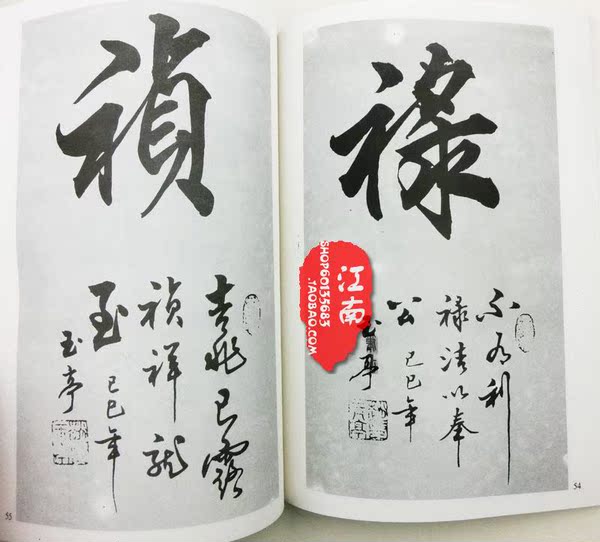 祿
不为利
祿洁以奉
公 己巳年
玉亭
54
禎
吉兆已露
禎祥就
至 己巳年
玉亭
55
江南
SHOP60135683
.TAOBAO.COM